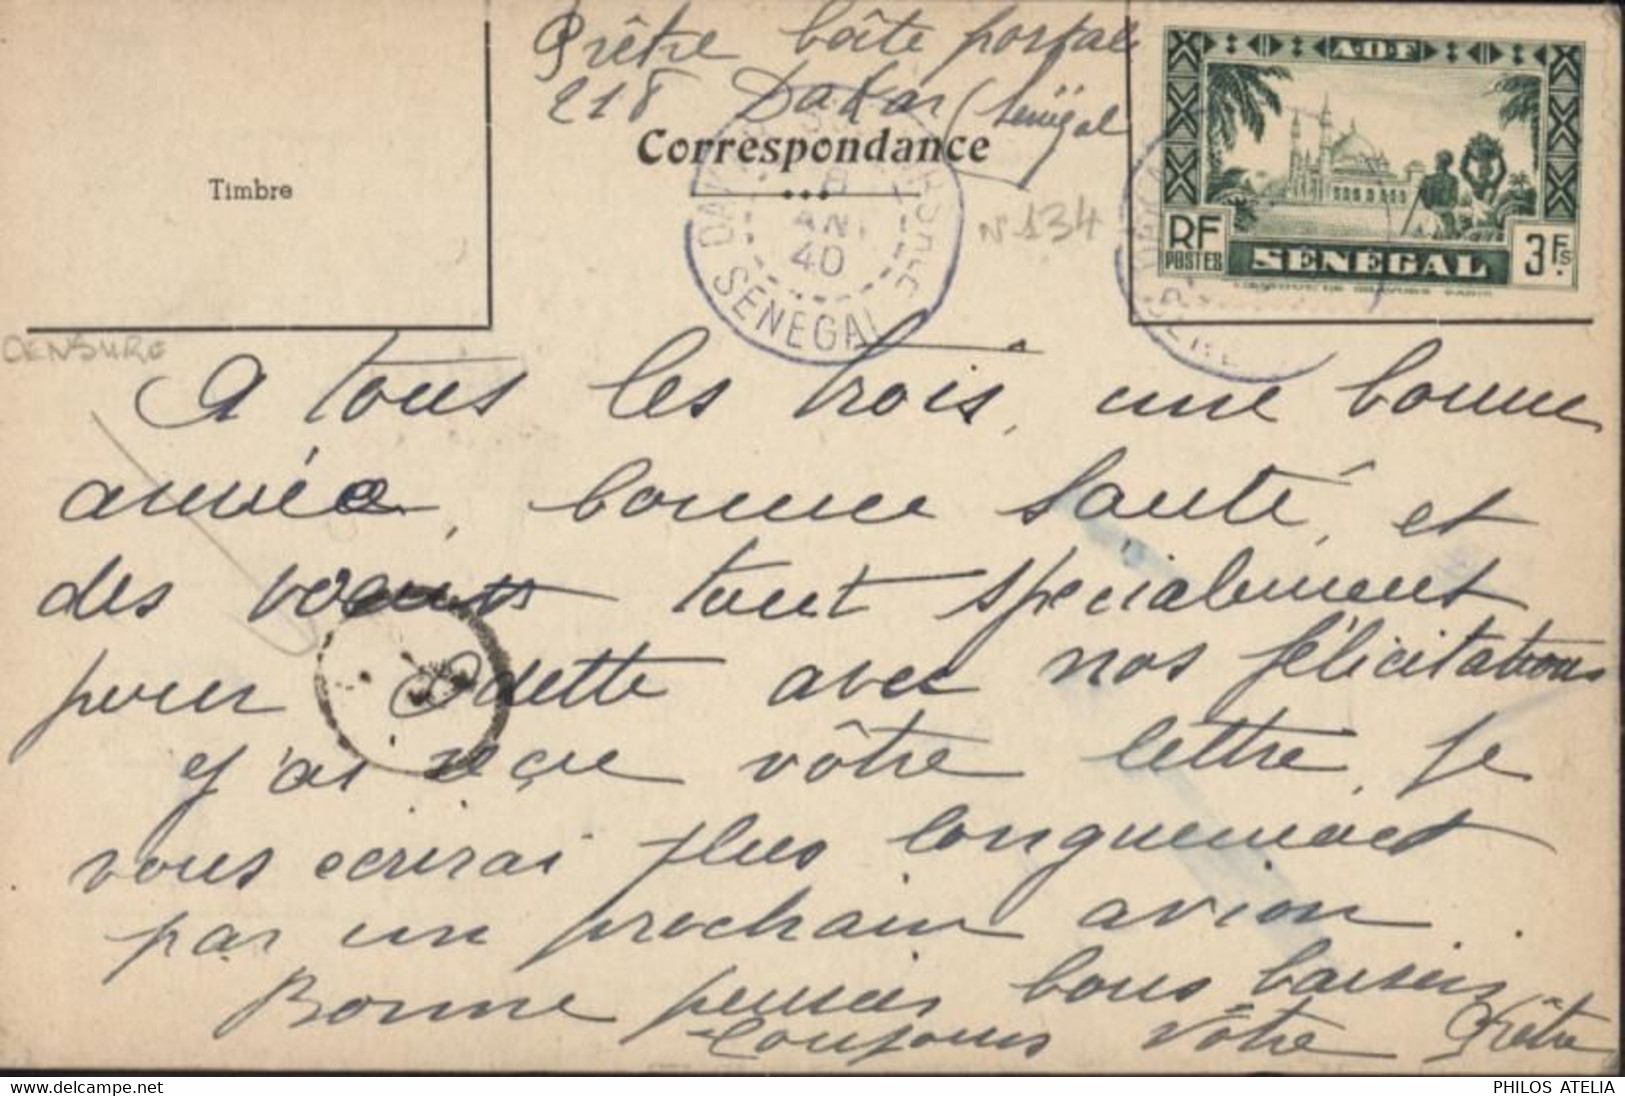 Prêtre boîte postale
218 Dakar (Sénégal
Timbre
Correspondance
N° 134
8
JANV
40
DAKAR
SENEGAL
A.O.F
RF
POSTES
SÉNÉGAL
3Fs.
CENSURE
A tous les trois, une bonne
année, bonne santé, et
des voeux tout spécialement
pour Odette avec nos félicitations
J'ai reçue vôtre lettre, je
vous écrirai plus longuement
par un prochain avion.
Bonne bons baisers
toujours Vôtre Prêtre
PHILOS ATELIA
www.delcampe.net